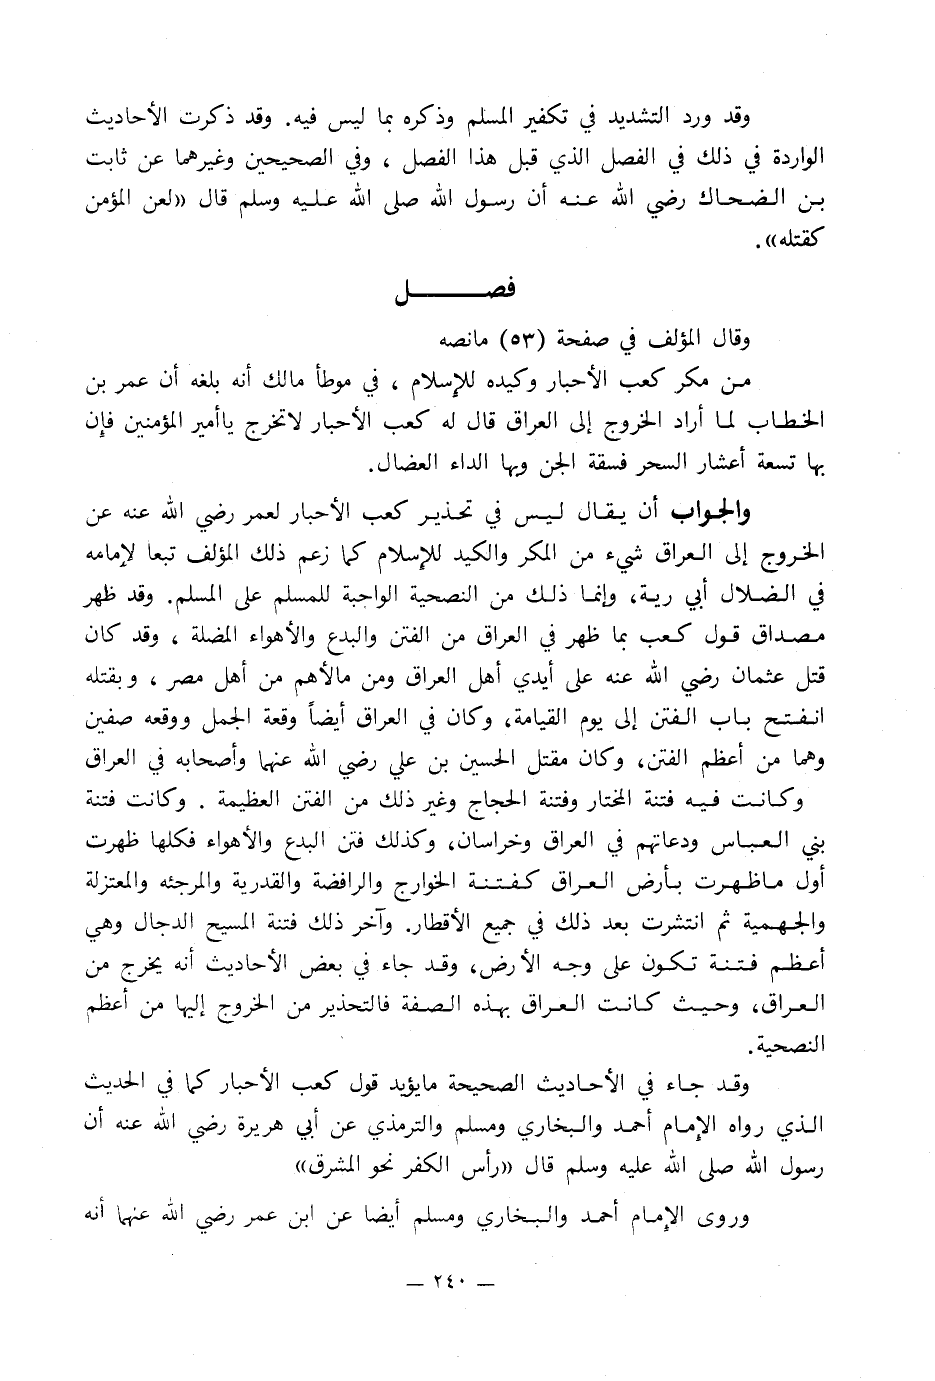 وقد ورد التشديد في تكفير المسلم وذكره بما ليس فيه. وقد ذكرت الأحاديث
الواردة في ذلك في الفصل الذي قبل هذا الفصل ، وفي الصحيحين وغيرهما عن ثابت
بن الضحاك رضي الله عنه أن رسول الله صلى الله عليه وسلم قال «لعن المؤمن
كقتله».
فصــــــل
وقال المؤلف في صفحة (٥٣) مانصه
من مكر كعب الأحبار وكيده للإسلام ، في موطأ مالك أنه بلغه أن عمر بن
الخطاب لما أراد الخروج إلى العراق قال له كعب الأحبار لاتخرج ياأمير المؤمنين فإن
بها تسعة أعشار السحر فسقة الجن وبها الداء العضال.
والجواب أن يقال ليس في تحذير كعب الأحبار لعمر رضي الله عنه عن
الخروج إلى العراق شيء من المكر والكيد للإسلام كما زعم ذلك المؤلف تبعا لإمامه
في الضلال أبي رية، وإنما ذلك من النصحية الواجبة للمسلم على المسلم. وقد ظهر
مصداق قول كعب بما ظهر في العراق من الفتن والبدع والأهواء المضلة ، وقد كان
قتل عثمان رضي الله عنه على أيدي أهل العراق ومن مالأهم من أهل مصر ، وبقتله
انفتح باب الفتن إلى يوم القيامة، وكان في العراق أيضاً وقعة الجمل ووقعه صفين
وهما من أعظم الفتن، وكان مقتل الحسين بن علي رضي الله عنهما وأصحابه في العراق
وكانت فيه فتنة المختار وفتنة الحجاج وغير ذلك من الفتن العظيمة . وكانت فتنة
بني العباس ودعاتهم في العراق وخراسان، وكذلك فتن البدع والأهواء فكلها ظهرت
أول ماظهرت بأرض العراق كفتنة الخوارج والرافضة والقدرية والمرجئه والمعتزلة
والجهمية ثم انتشرت بعد ذلك في جميع الأقطار. وآخر ذلك فتنة المسيح الدجال وهي
أعظم فتنة تكون على وجه الأرض، وقد جاء في بعض الأحاديث أنه يخرج من
العراق، وحيث كانت العراق بهذه الصفة فالتحذير من الخروج إليها من أعظم
النصحية.
وقد جاء في الأحاديث الصحيحة مايؤيد قول كعب الأحبار كما في الحديث
الذي رواه الإمام أحمد والبخاري ومسلم والترمذي عن أبي هريرة رضي الله عنه أن
رسول الله صلى الله عليه وسلم قال «رأس الكفر نحو المشرق»
وروى الإمام أحمد والبخاري ومسلم أيضا عن ابن عمر رضي الله عنهما أنه
— ٢٤٠ —